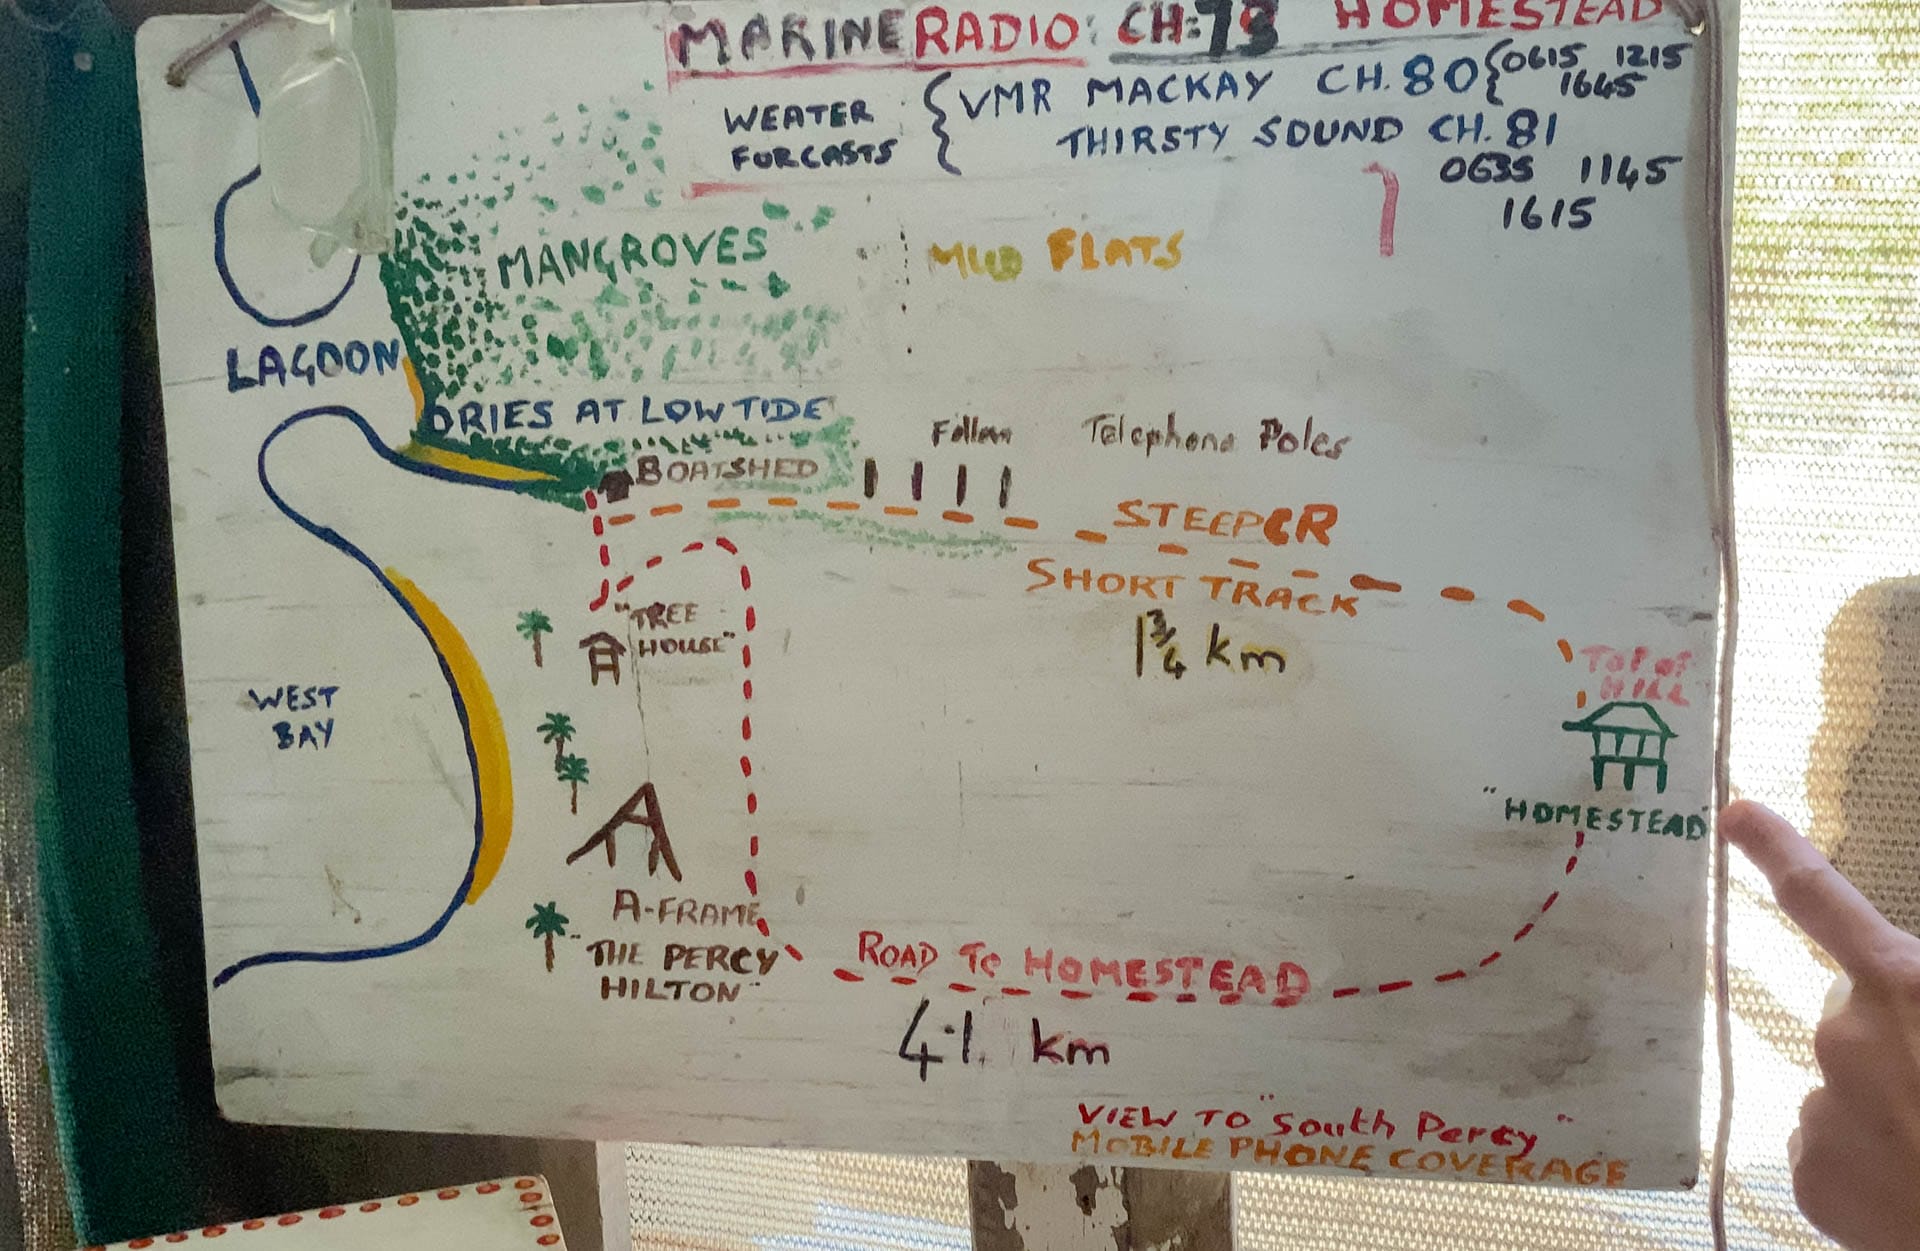 MARINE RADIO: CH:73 HOMESTEAD
WEATER
FORCASTS
VMR MACKAY CH. 80 0615 1215
1645
THIRSTY SOUND CH. 81
0635 1145
1615
MANGROVES
MUD FLATS
LAGOON
DRIES AT LOW TIDE
BOATSHED
Follow Telephone Poles
STEEPER
SHORT TRACK
1 3/4 km
"TREE
HOUSE"
WEST
BAY
TOP OF
HILL
"HOMESTEAD"
A-FRAME
"THE PERCY
HILTON"
ROAD To HOMESTEAD
4.1 km
VIEW TO "South Percy"
MOBILE PHONE COVERAGE